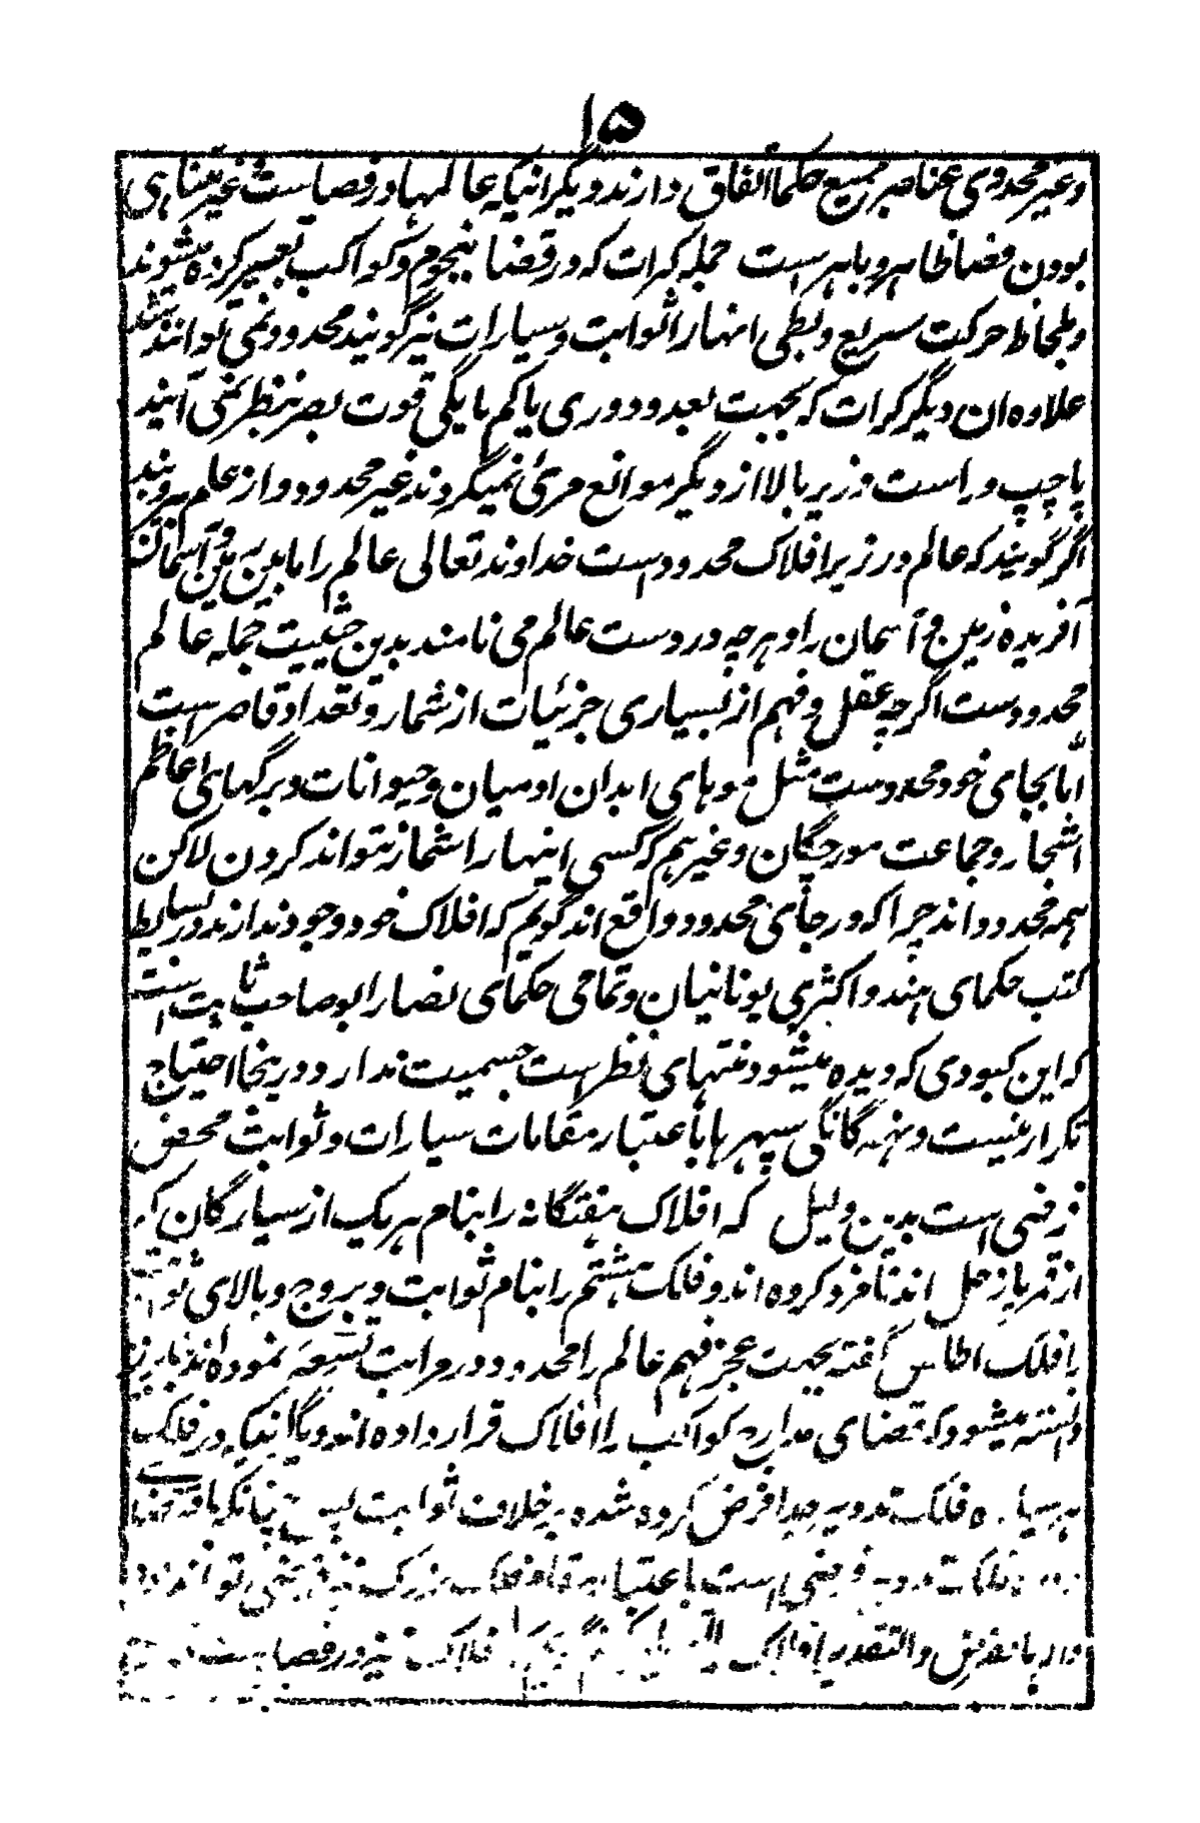 ۱۵
و غیر محدودی عناصر جمیع حکما اتفاق دارند و دیگر انیکه عالمها در فضاست غیر متناهی
بودن فضا ظاهر و باهر است جمله کرات که در فضا بنجوم و کواکب تعبیر کرده میشوند
و بلحاظ حرکت سریع و بطی انها را ثوابت و سیارات نیز گویند محدود نمی توانند شد
علاوه ان دیگر کرات که بجهت بعد و دوری یا کم مایگی قوت بصر بنظر نمی آیند
یا چپ و راست و زیر بالا از دیگر موانع مرئی نمیگردند غیر محدود و از علم بیرونند
اگر گویند که عالم در زیر افلاک محدود است خداوند تعالی عالم را مابین زمین و آسمان
آفریده زمین و آسمان را و هر چه در دست عالم می نامند بدین حیثیت جمله عالم
محدودست اگرچه عقل و فهم از بسیاری جزئیات از شمار و تعداد قاصر است
اما بجای خود محدودست مثل موهای ابدان ادمیان و حیوانات و برگهای اعاظم
اشجار و جماعت مورچگان و غیرهم که کسی اینها را شمار نتواند کردن لاکن
همه محدود اند چرا که در جای محدود واقع اند گویم که افلاک خود وجود ندارند در بسایط
کتب حکمای هند و اکثری یونانیان و تمامی حکمای نضارا بو صاحب ثابت است
که این کبودی که دیده میشود منتهای نظر است جسمیت ندارد و درینجا احتیاج
تکرار نیست و نهه گانگی سپهرها باعتبار مقامات سیارات و ثوابت محض
فرضی است بدین دلیل که افلاک هفتگانه را بنام هر یک از سیارگان که
از قمر باز حل اند نامزد کرده اند و فلک هشتم را بنام ثوابت و بروج و بالای
را فلک اطلس گفته بجهت عجز فهم عالم را محدود در مراتب تسعه نموده اند
دانسته میشود که فضای مدارج کواکب را افلاک قرار داده اند و دیگر اینکه در فلک
هر سیاره فلک تدویر جدا فرض کرده شده بر خلاف ثوابت
فلک تدویر فرضی است باعتبار فلک بزرگ نیز نمی تواند بود
بالفرض والتقدیر افلاک فلاک نیز در فضا